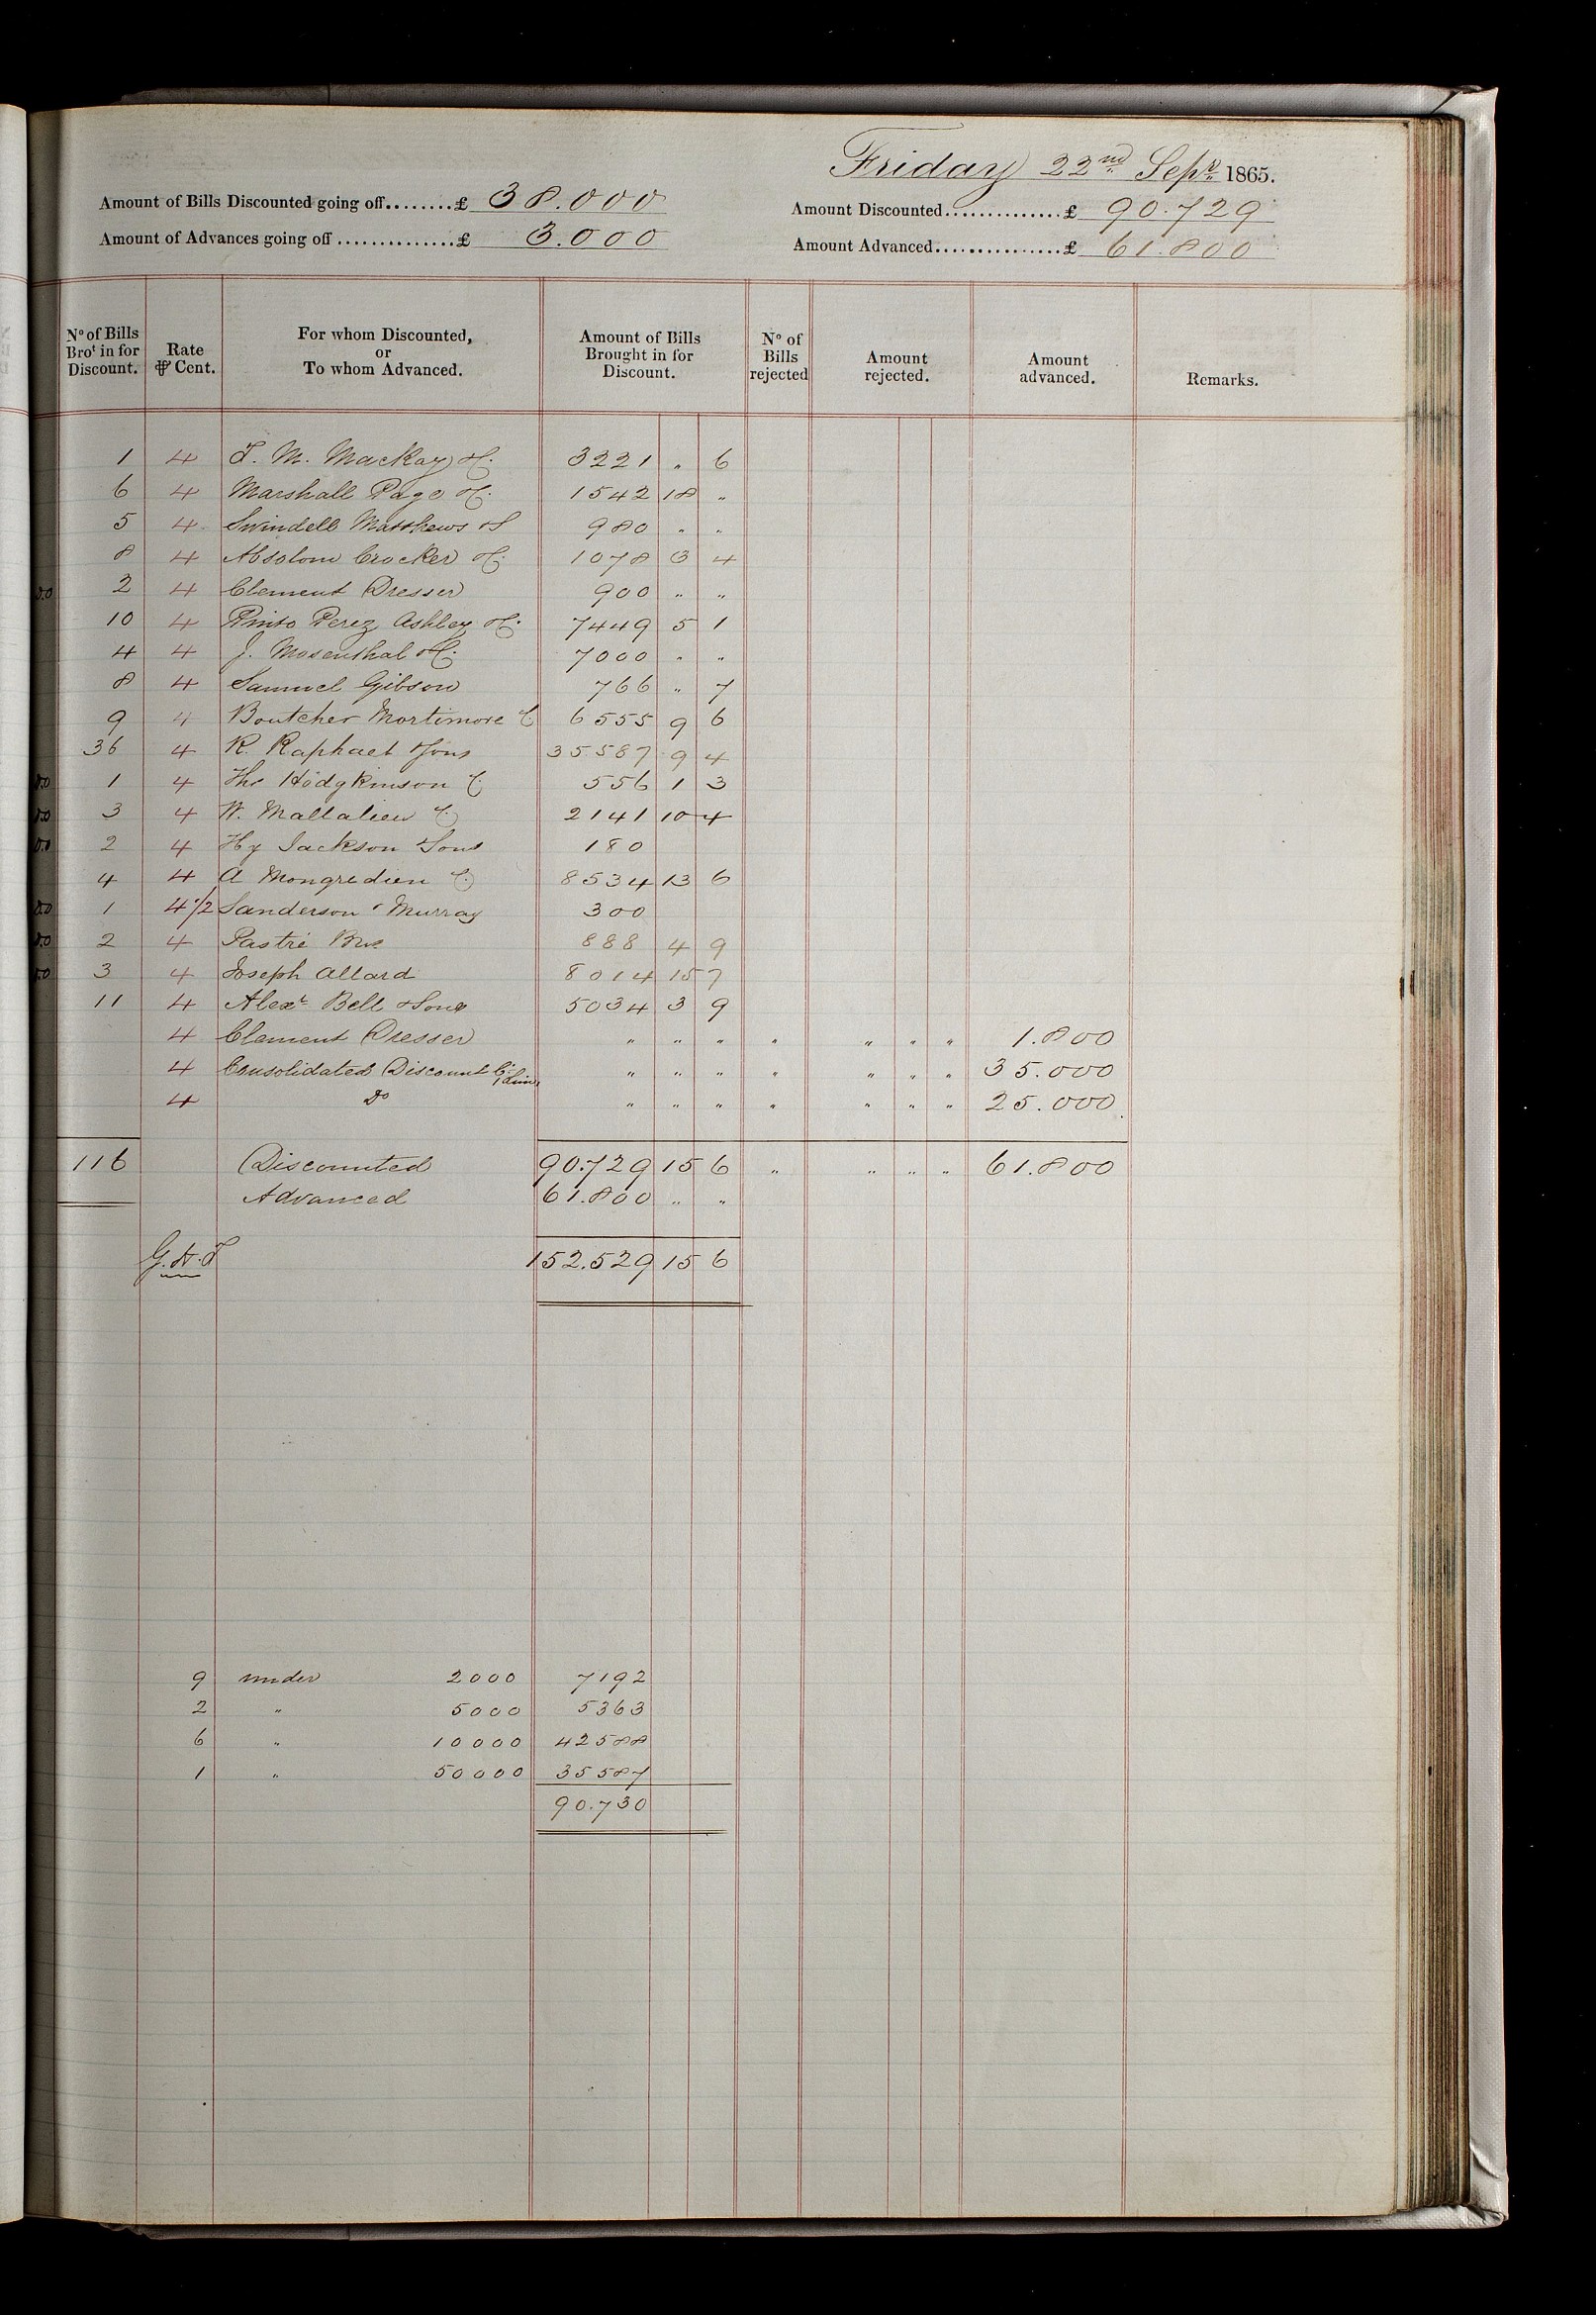 Friday 22nd Sepr 1865.
Amount of Bills Discounted going off........£ 38.000
Amount Discounted..............£ 90.729
Amount of Advances going off..............£ 3.000
Amount Advanced...............£ 61.800
No of Bills Brot in for Discount. Rate ⅌ Cent. For whom Discounted, or To whom Advanced. Amount of Bills Brought in for Discount. No of Bills rejected Amount rejected. Amount advanced. Remarks.
1 4 T. M. Mackay & C. 3221 " 6
6 4 Marshall Page & C. 1542 18 "
5 4 Swindell Matthews & S 980 " "
8 4 Absolom Crocker & C. 1078 3 4
Do 2 4 Clement Dresser 900 " "
10 4 Pinto Perez Ashley & C. 7449 5 1
4 4 J. Mosenthal & C. 7000 " "
8 4 Samuel Gibson 766 " 7
9 4 Boutcher Mortimore C 6555 9 6
36 4 R. Raphael & Sons 35587 9 4
Do 1 4 Tho Hodgkinson C 556 1 3
Do 3 4 W. Mallalieu C 2141 10 4
Do 2 4 Hy Jackson & Sons 180
4 4 A Mongredien C 8534 13 6
Do 1 4 1/2 Sanderson & Murray 300
Do 2 4 Pastré Bros 888 4 9
Do 3 4 Joseph Allard 8014 15 7
11 4 Alexr Bell & Sons 5034 3 9
4 Clement Dresser " " " " " " " 1.800
4 Consolidated Discount Co Lim. " " " " " " " 35.000
4 Do " " " " " " " 25.000
116 Discounted 90.729 15 6 " " " " 61.800
Advanced 61.800 " "
152.529 15 6
9 under 2000 7192
2 " 5000 5363
6 " 10000 42588
1 " 50000 35587
90.730